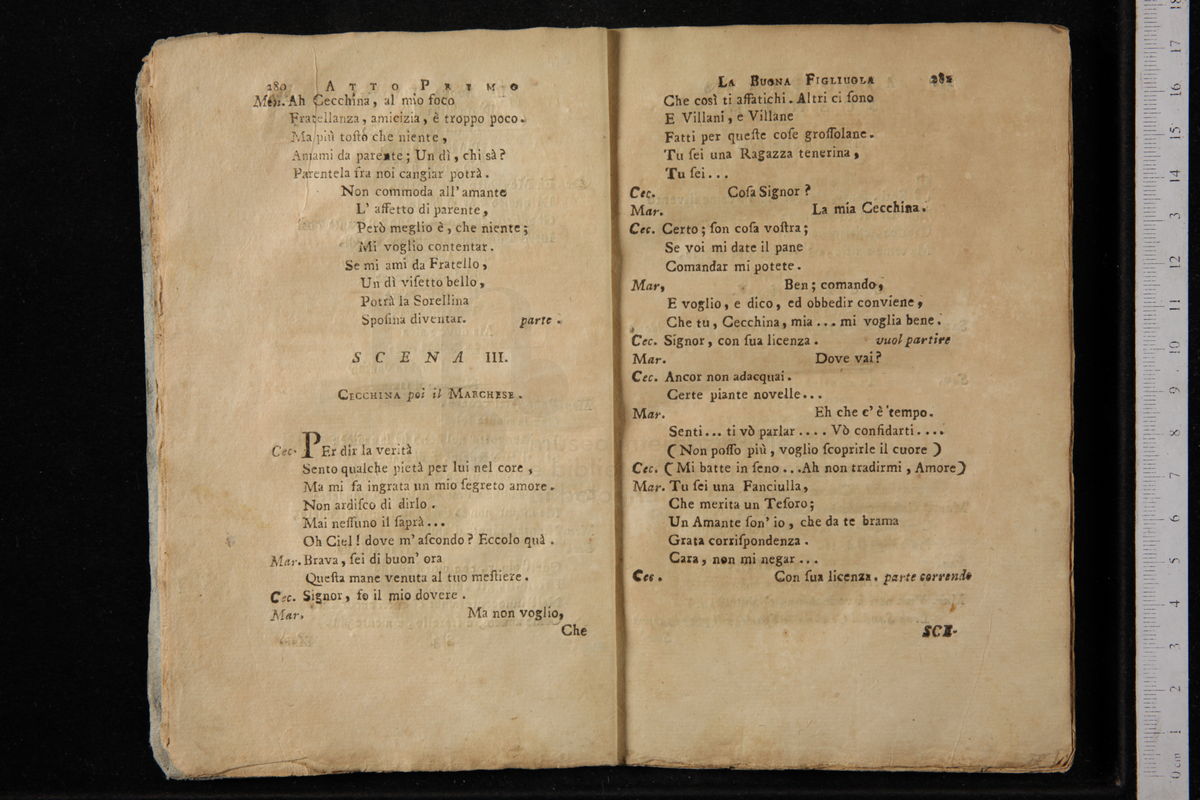 280 ATTO PRIMO
Men. Ah Cecchina, al mio foco
Fratellanza, amicizia, è troppo poco.
Ma più toſto che niente,
Amami da parente; Un dì, chi sà?
Parentela fra noi cangiar potrà.
Non commoda all' amante
L' affetto di parente,
Però meglio è, che niente;
Mi voglio contentar.
Se mi ami da Fratello,
Un dì viſetto bello,
Potrà la Sorellina
Spoſina diventar. parte.
SCENA III.
CECCHINA poi il MARCHESE.
Cec. PEr dir la verità
Sento qualche pietà per lui nel core,
Ma mi fa ingrata un mio ſegreto amore.
Non ardiſco di dirlo.
Mai neſſuno il ſaprà...
Oh Ciel! dove m' aſcondo? Eccolo quà.
Mar. Brava, ſei di buon' ora
Queſta mane venuta al tuo meſtiere.
Cec. Signor, fo il mio dovere.
Mar. Ma non voglio,
Che
LA BUONA FIGLIUOLA 281
Che così ti affatichi. Altri ci ſono
E Villani, e Villane
Fatti per queſte coſe groſſolane.
Tu ſei una Ragazza tenerina,
Tu ſei...
Cec. Coſa Signor?
Mar. La mia Cecchina.
Cec. Certo; ſon coſa voſtra;
Se voi mi date il pane
Comandar mi potete.
Mar, Ben; comando,
E voglio, e dico, ed obbedir conviene,
Che tu, Cecchina, mia... mi voglia bene.
Cec. Signor, con ſua licenza. vuol partire
Mar. Dove vai?
Cec. Ancor non adacquai.
Certe piante novelle...
Mar. Eh che c' è tempo.
Senti... ti vò parlar.... Vò confidarti....
(Non poſſo più, voglio ſcoprirle il cuore)
Cec. (Mi batte in ſeno...Ah non tradirmi, Amore)
Mar. Tu ſei una Fanciulla,
Che merita un Teſoro;
Un Amante ſon' io, che da te brama
Grata corriſpondenza.
Cara, non mi negar...
Cec. Con ſua licenza. parte correndo
SCE-
0 cm 1 2 3 4 5 6 7 8 9 10 11 12 13 14 15 16 17 18